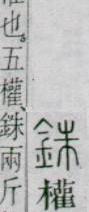 銖權
權也。五權、銖兩斤